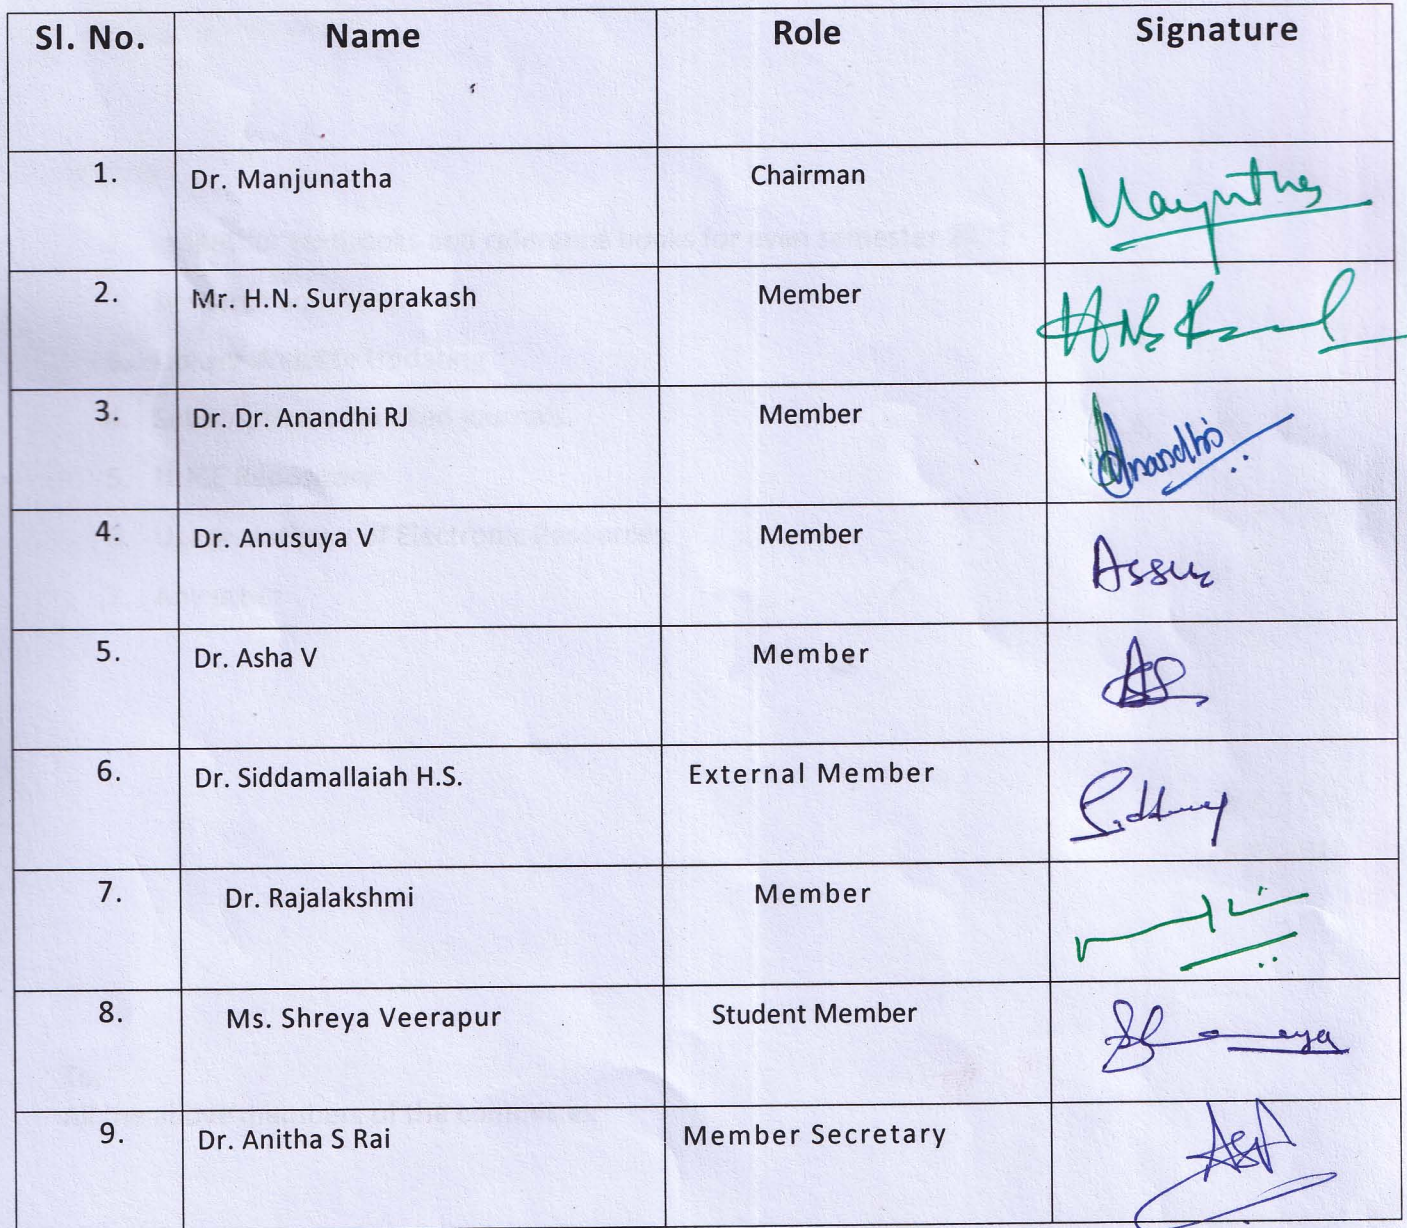 Sl. No. Name Role Signature
1. Dr. Manjunatha Chairman
2. Mr. H.N. Suryaprakash Member
3. Dr. Dr. Anandhi RJ Member Anandhi
4. Dr. Anusuya V Member
5. Dr. Asha V Member
6. Dr. Siddamallaiah H.S. External Member
7. Dr. Rajalakshmi Member
8. Ms. Shreya Veerapur Student Member
9. Dr. Anitha S Rai Member Secretary